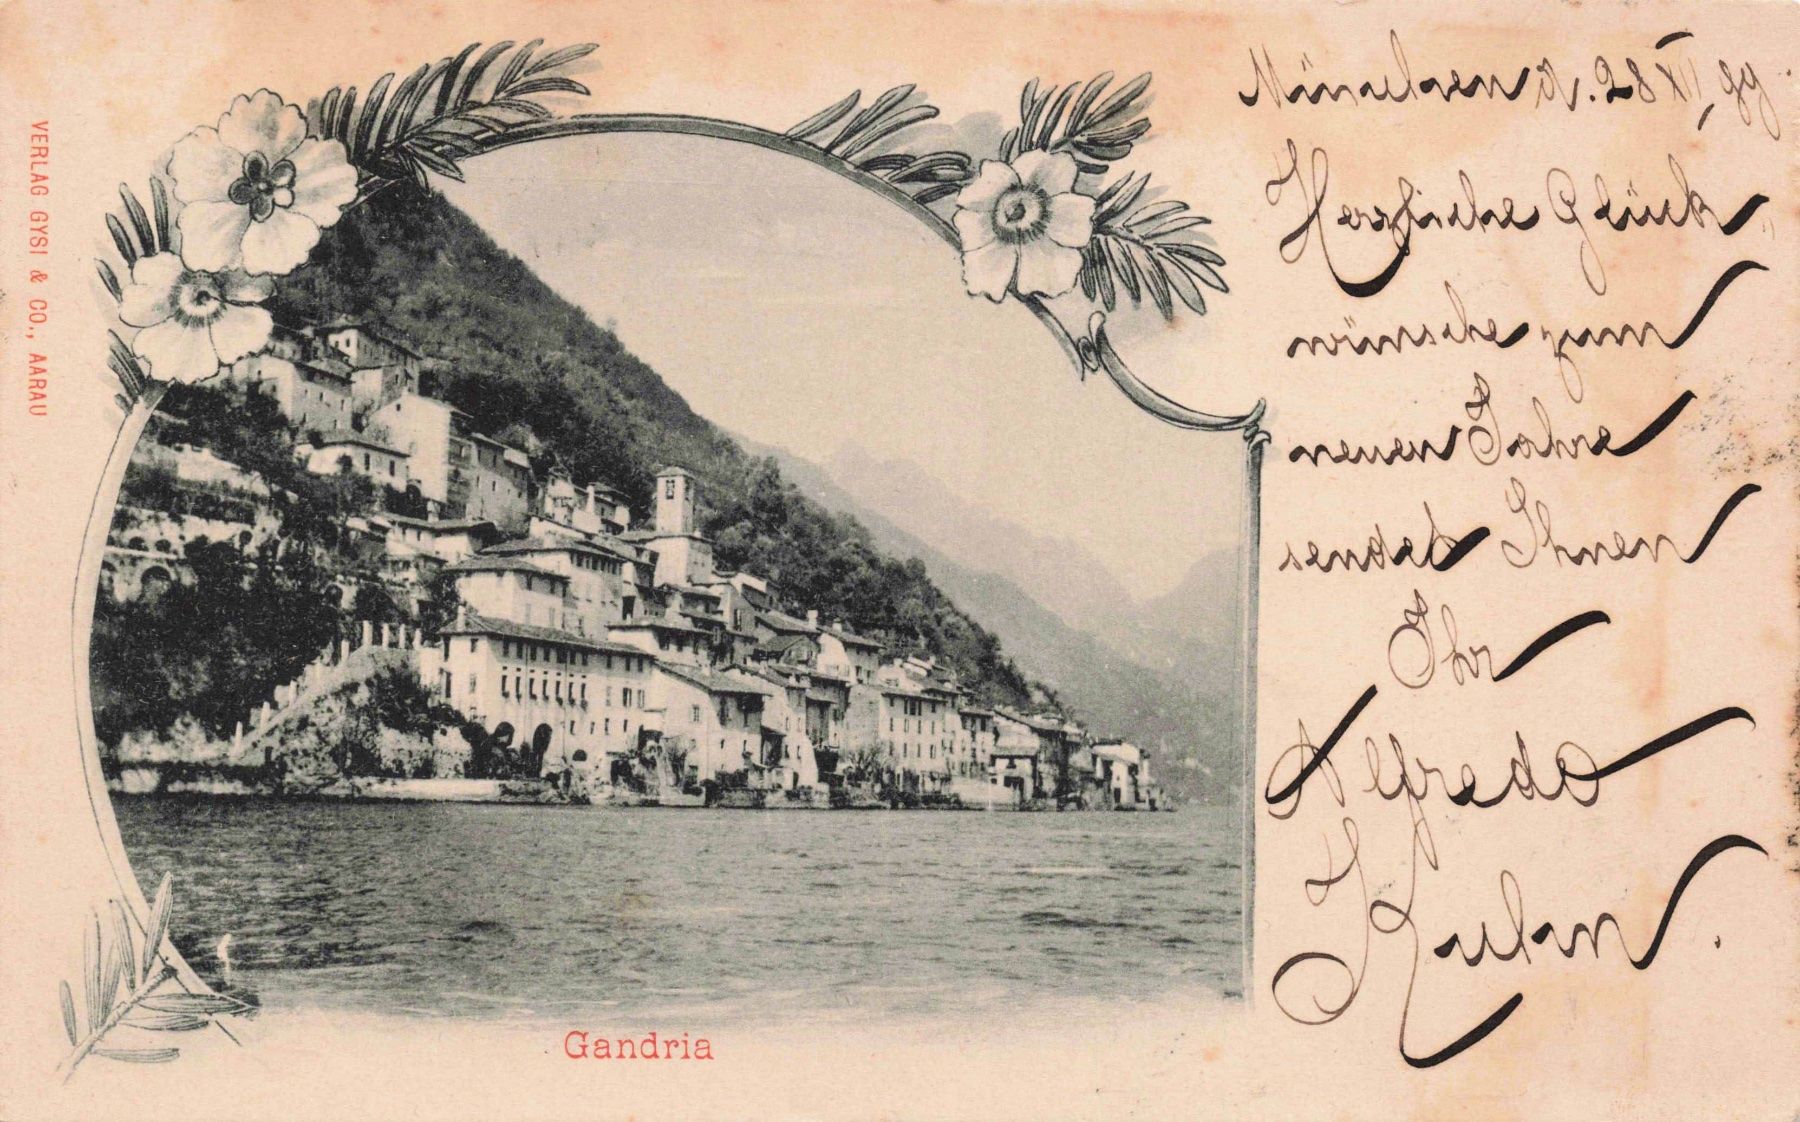 VERLAG GYSI & CO., AARAU
Gandria
München d. 28 XII, 99.
Herzliche Glück
wünsche zum
neuen Jahre
sendet Ihnen
Ihr
Alfredo
Kuhn.